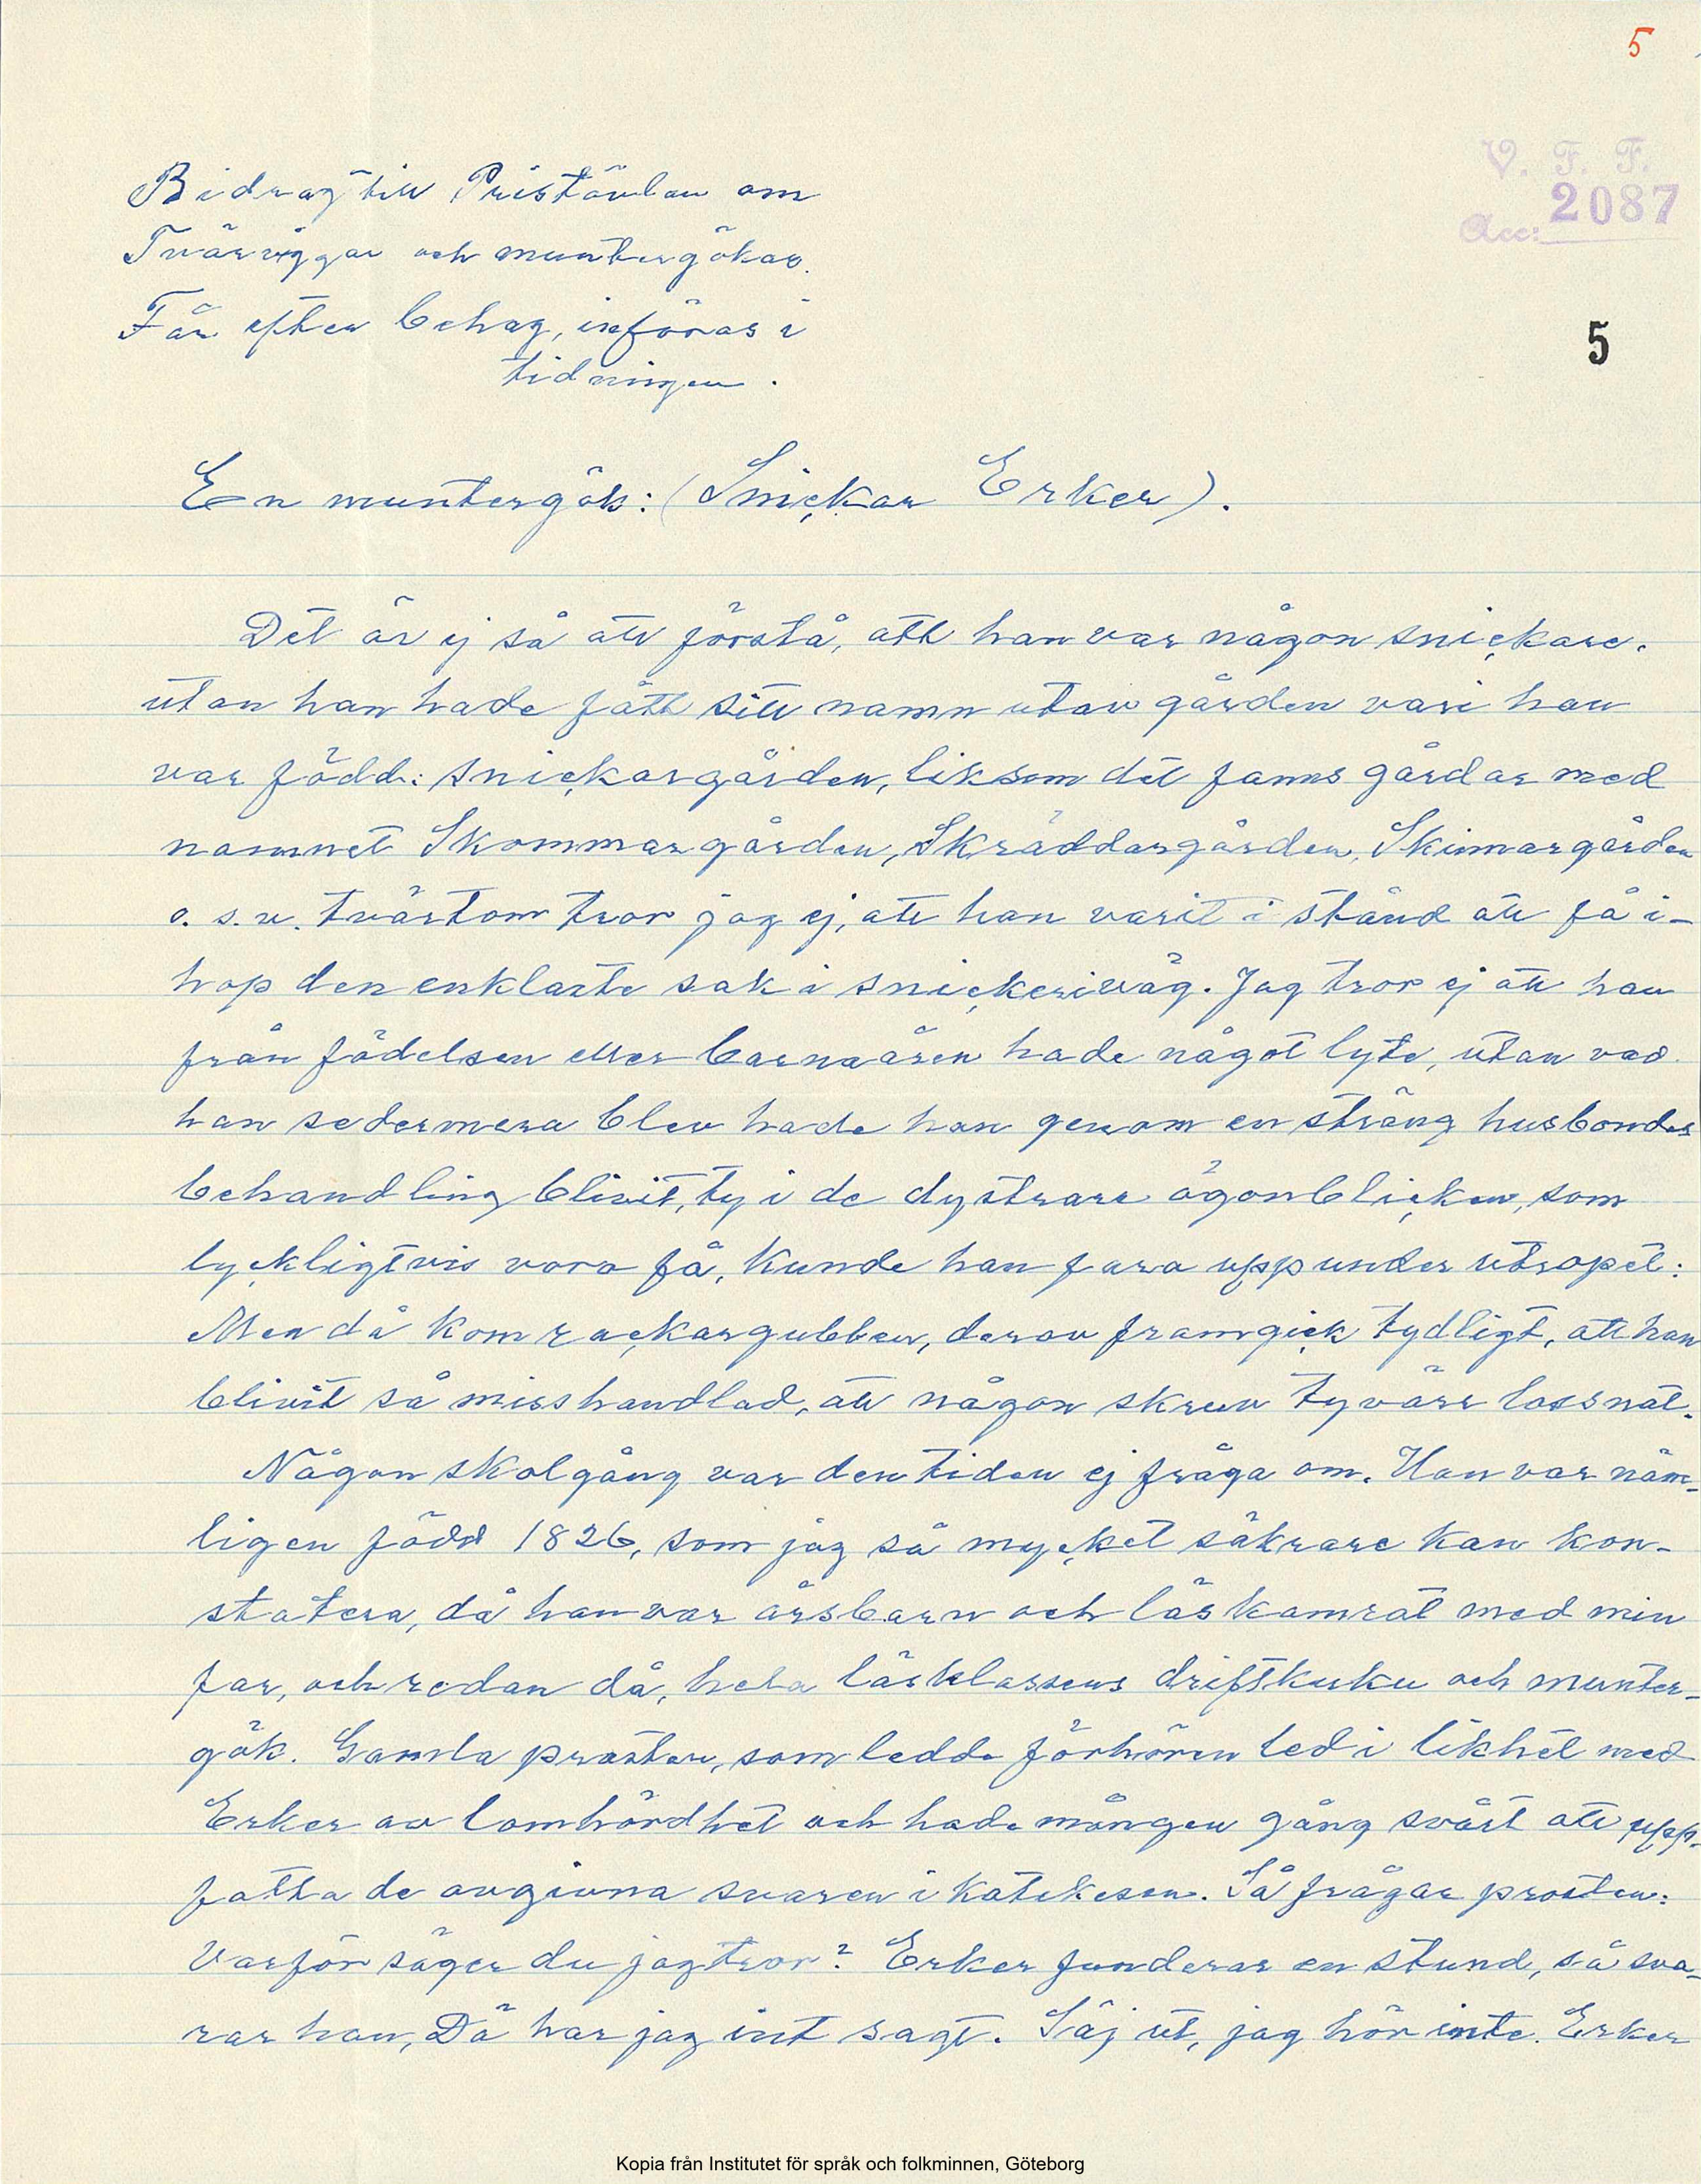 5
V. F. F.
Acc: 2087
Bidrag till Pristävlan om
Tvärviggar och muntergökar.
Får efter behag, införas i
tidningen.
5
En muntergök: (Snickar Erker).
Det är ej så att förstå, att han var någon snickare.
utan han hade fått sitt namn utav gården vari han
var född: snickargården, liksom det fanns gårdar med
namnet Skommargården, Skräddargården, Skinnargården
o. s. v. tvärtom tror jag ej, att han varit i stånd att få i-
hop den enklaste sak i snickeriväg. Jag tror ej att han
från födelsen eller barnaåren hade något lyte, utan vad
han sedermera blev hade han genom en sträng husbondes
behandling blivit, ty i de dystrare ögonblicken, som
lyckligtvis voro få, kunde han fara upp under utropet:
Men då kom rackargubben, derav framgick tydligt, att han
blivit så misshandlad, att någon skruv tyvärr lossnat.
Någon skolgång var den tiden ej fråga om. Han var näm-
ligen född 1826, som jag så mycket säkrare kan kon-
statera, då han var årsbarn och läskamrat med min
far, och redan då, hela läsklassens driftkuku och munter-
gök. Gamla prosten, som ledde förhören led i likhet med
Erker av lomhördhet och hade mången gång svårt att upp-
fatta de avgivna svaren i katekesen. Så frågar prosten:
Varför säger du jag tror? Erker funderar en stund, så sva-
rar han, Dä har jag int sagt. Säj ut, jag hör inte. Erker
Kopia från Institutet för språk och folkminnen, Göteborg